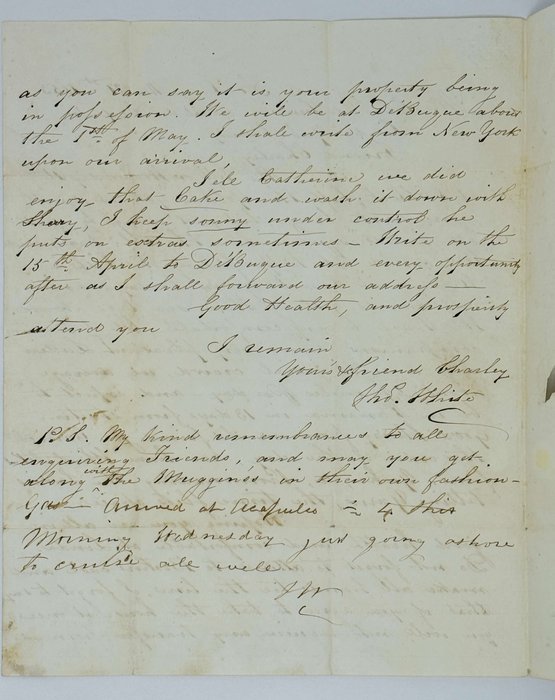 as you can say it is your property being
in possession. We will be at DeBuque about
the 1st of May. I shall write from New York
upon our arrival,
Tell Catherine we did
enjoy that Cake and wash it down with
Shary, I keep sonny under control he
puts on extras sometimes – Write on the
15th April to DeBuque and every opportunity
after as I shall forward our address –
Good Health, and prosperity
attend you
I remain
Your friend Charley
Thos. White
P.S. My kind remembrances to all
enquiring Friends, and may you get
along with the Muggins in their own fashion –
Arrived at Acapulco 4 this
Morning Wednesday just going ashore
to cruise all well
TW